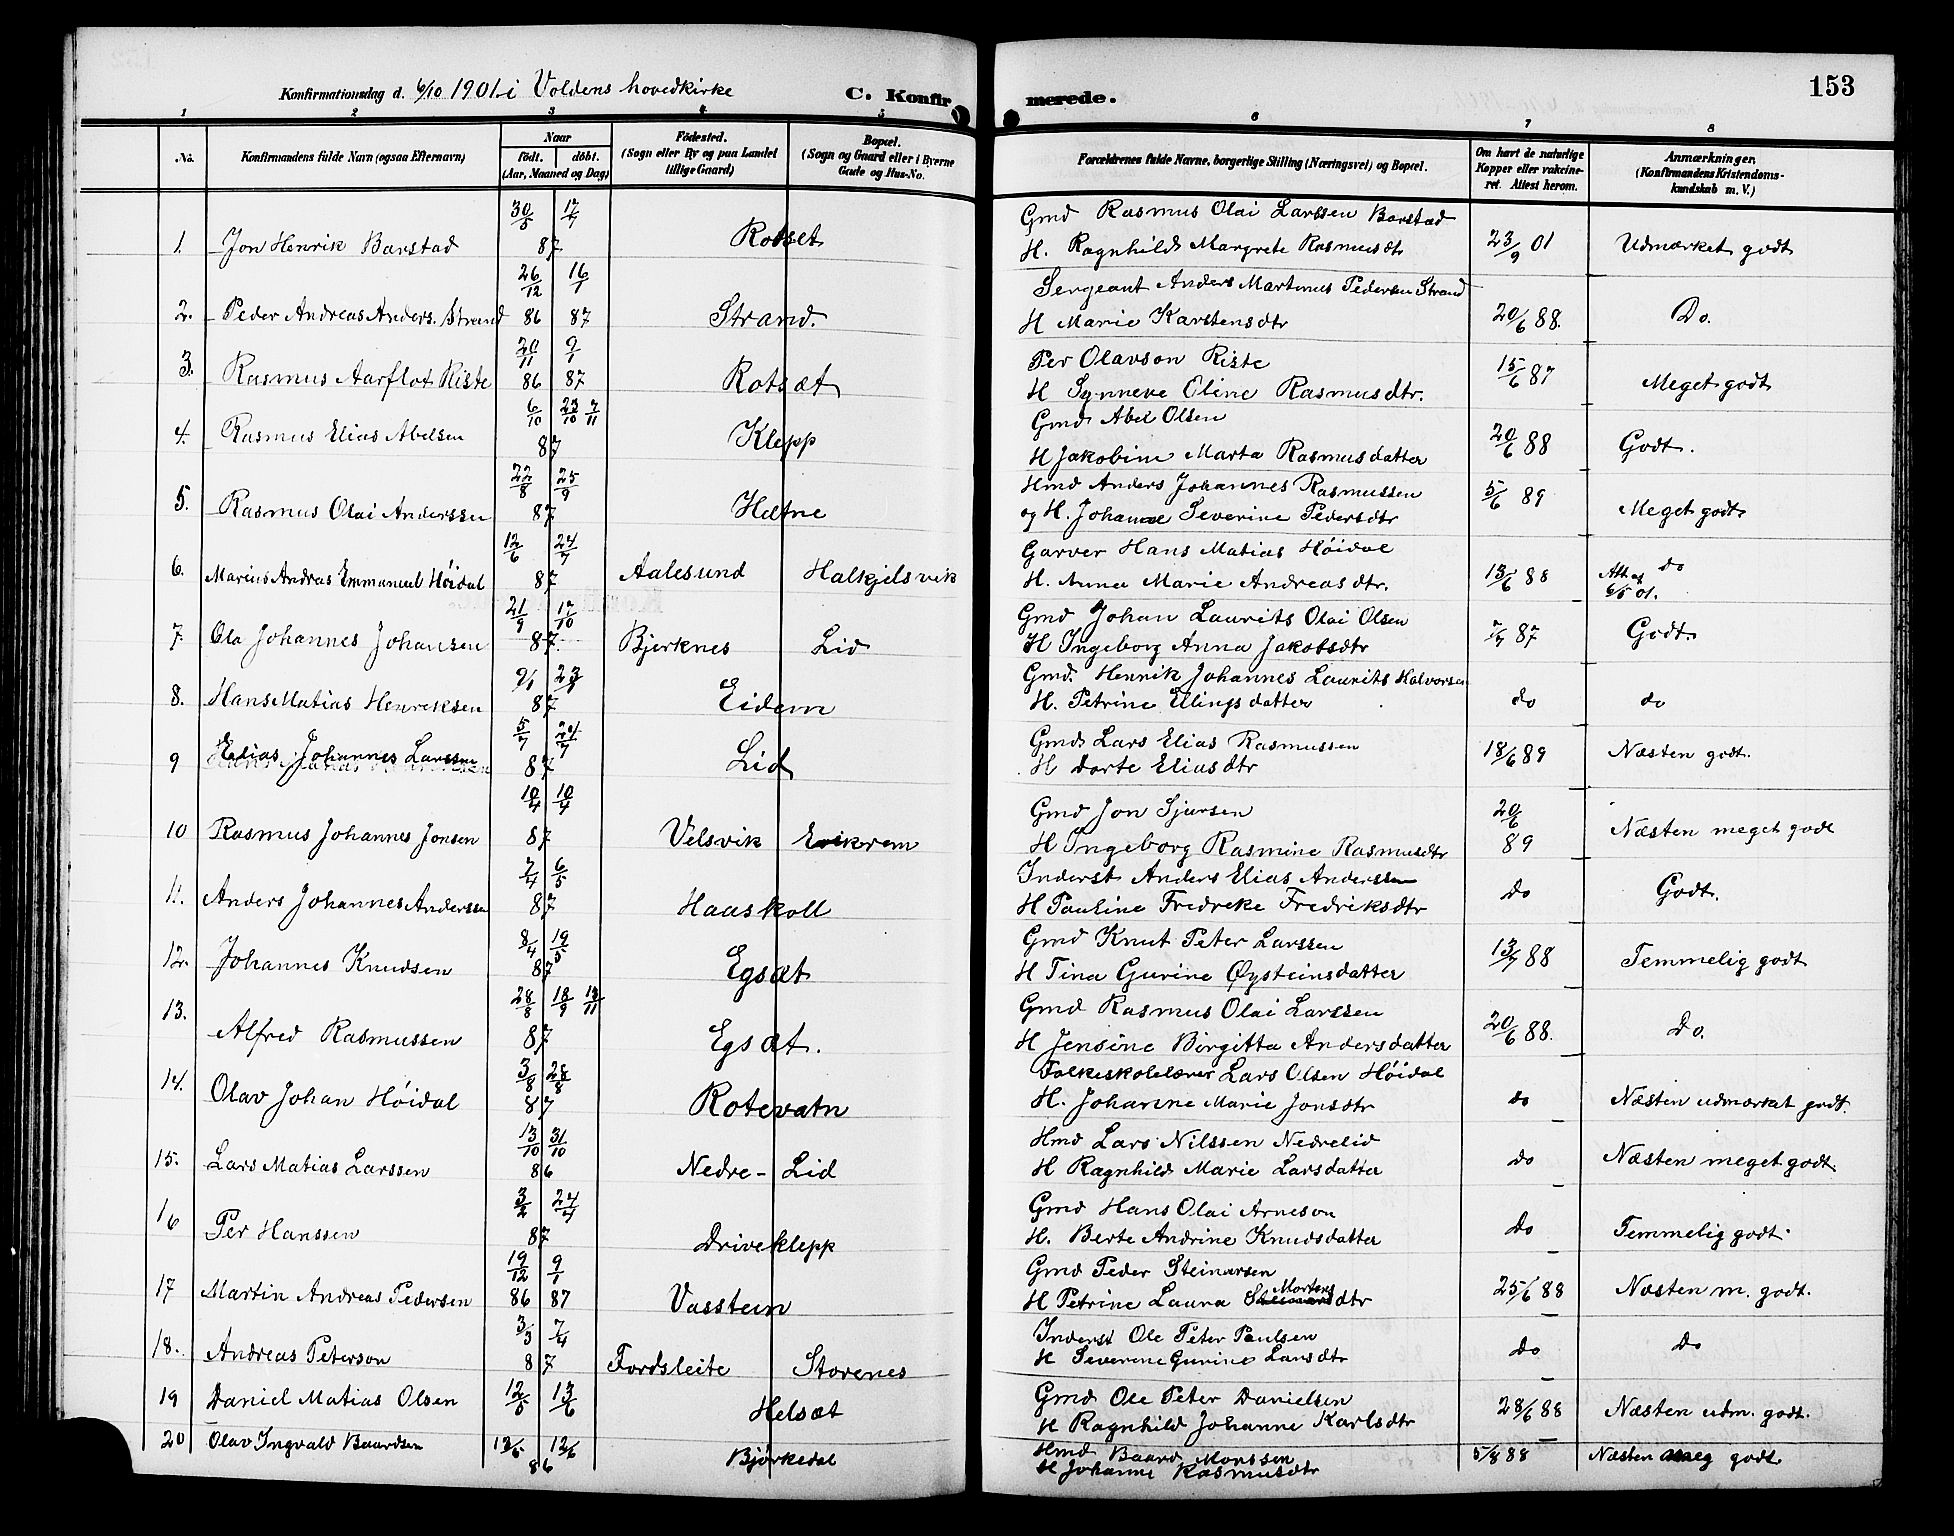 Konfirmationsdag d. 6/10 1901 i Voldens hovedkirke C. Konfirmerede. 153
1 2 3 4 5 6 7 8
No. Konfirmandens fulde Navn (ogsaa Efternavn) Naar født. døbt. (Aar, Maaned og Dag) Fødested. (Sogn eller By og paa Landet tillige Gaard) Bopæl. (Sogn og Gaard eller i Byerne Gade og Hus-No. Forældrenes fulde Navne, borgerlige Stilling (Næringsvei) og Bopæl. Om havt de naturlige Kopper eller vakcineret. Attest herom. Anmærkninger. (Konfirmandens Kristendomskundskab m. V.)
1. Jon Henrik Barstad 30/5 17/7 87 Rotset Gmd Rasmus Olai Larssen Barstad
H. Ragnhild Margrete Rasmusdtr 23/9 01 Udmærket godt
2. Peder Andreas Anders. Strand 26/12 86 16/1 87 Strand. Sergeant Anders Martinus Pedersen Strand
H Marie Karstensdtr 20/6 88. Do.
3. Rasmus Aarflot Riste 20/11 86 9/1 87 Rotsæt Per Olavson Riste
H Synneve Oline Rasmusdtr. 15/6 87 Meget godt
4. Rasmus Elias Abelsen 6/10 23/10 7/11 87 Klepp Gmd Abel Olsen
H Jakobine Marta Rasmusdatter 20/6 88 Godt.
5. Rasmus Olai Anderssen 22/8 25/9 87 Hætne Hmd Anders Johannes Rasmussen
og H. Johanne Severine Pedersdtr 5/6 89 Meget godt
6. Marius Andreas Emmanuel Höidal 12/6 24/7 87 Aalesund Halkjelsvik Garver Hans Matias Höidal
H. Anna Marie Andreasdtr. 13/6 88 do Att af 6/5 01.
7. Ola Johannes Johansen 21/9 17/10 87. Bjerknes Lid Gmd Johan Laurits Olai Olsen
H Ingeborg Anna Jakobsdtr 7/7 87 Godt
8. Hans Matias Henriksen 9/1 23/1 87 Eidem Gmd. Henrik Johannes Laurits Halvorsen
H. Petrine Ellingsdatter do do
9 Elias Johannes Larssen 5/7 24/7 87 Lid Gmd Lars Elias Rasmussen
H Dorte Eliasdtr 18/6 89 Næsten godt.
10 Rasmus Johannes Jonsen 10/4 10/4 87 Velsvik Evikrem Gmd Jon Sjursen
H Ingeborg Rasmine Rasmusdtr 20/6 89 Næsten meget godt
11. Anders Johannes Anderssen 7/4 6/5 87 Haaskoll Inderst Anders Elias Anderssen
H Pauline Fredreke Fredriksdtr do Godt.
12. Johannes Knudsen 8/4 19/5 87 Egsæt Gmd Knut Peter Larssen
H Tina Gurine Øysteinsdatter 13/7 88 Temmelig godt
13. Alfred Rasmussen 28/8 18/9 13/11 87 Egsæt. Gmd Rasmus Olai Larssen
H Jensine Birgitta Andersdatter 20/6 88. Do.
14. Olav Johan Höidal 3/8 28/8 87 Rotevatn Folkeskolelærer Lars Olsen Höidal
H. Johanne Marie Jonsdtr do Næsten udmærket godt.
15. Lars Matias Larssen 13/10 31/10 86 Nedre-Lid Hmd Lars Nilssen Nedrelid
H Ragnhild Marie Larsdatter do Næsten meget godt
16 Per Hanssen 3/2 24/4 87 Driveklepp Gmd Hans Olai Arneson
H. Berte Andrine Knudsdatter do Temmelig godt.
17 Martin Andreas Pedersen 19/12 86 9/1 87 Vasstein Gmd Peder Steinarsen
H Petrine Laura Mortensdtr 25/6 88 Næsten m. godt.
18. Andreas Peterson 3/3 7/4 87 Fordsleite Storenes Inderst Ole Peter Paulsen
H Severine Gurine Larsdtr do do
19 Daniel Matias Olsen 12/5 13/6 Helsæt Gmd Ole Peter Danielsen
H Ragnhild Johanne Karlsdtr 28/6 88 Næsten udm. godt.
20 Olav Ingvald Baardsen 12/6 86 Bjørkedal Hmd Baard Monssen
H Johanne Rasmusdtr 5/8 88 Næsten meg godt